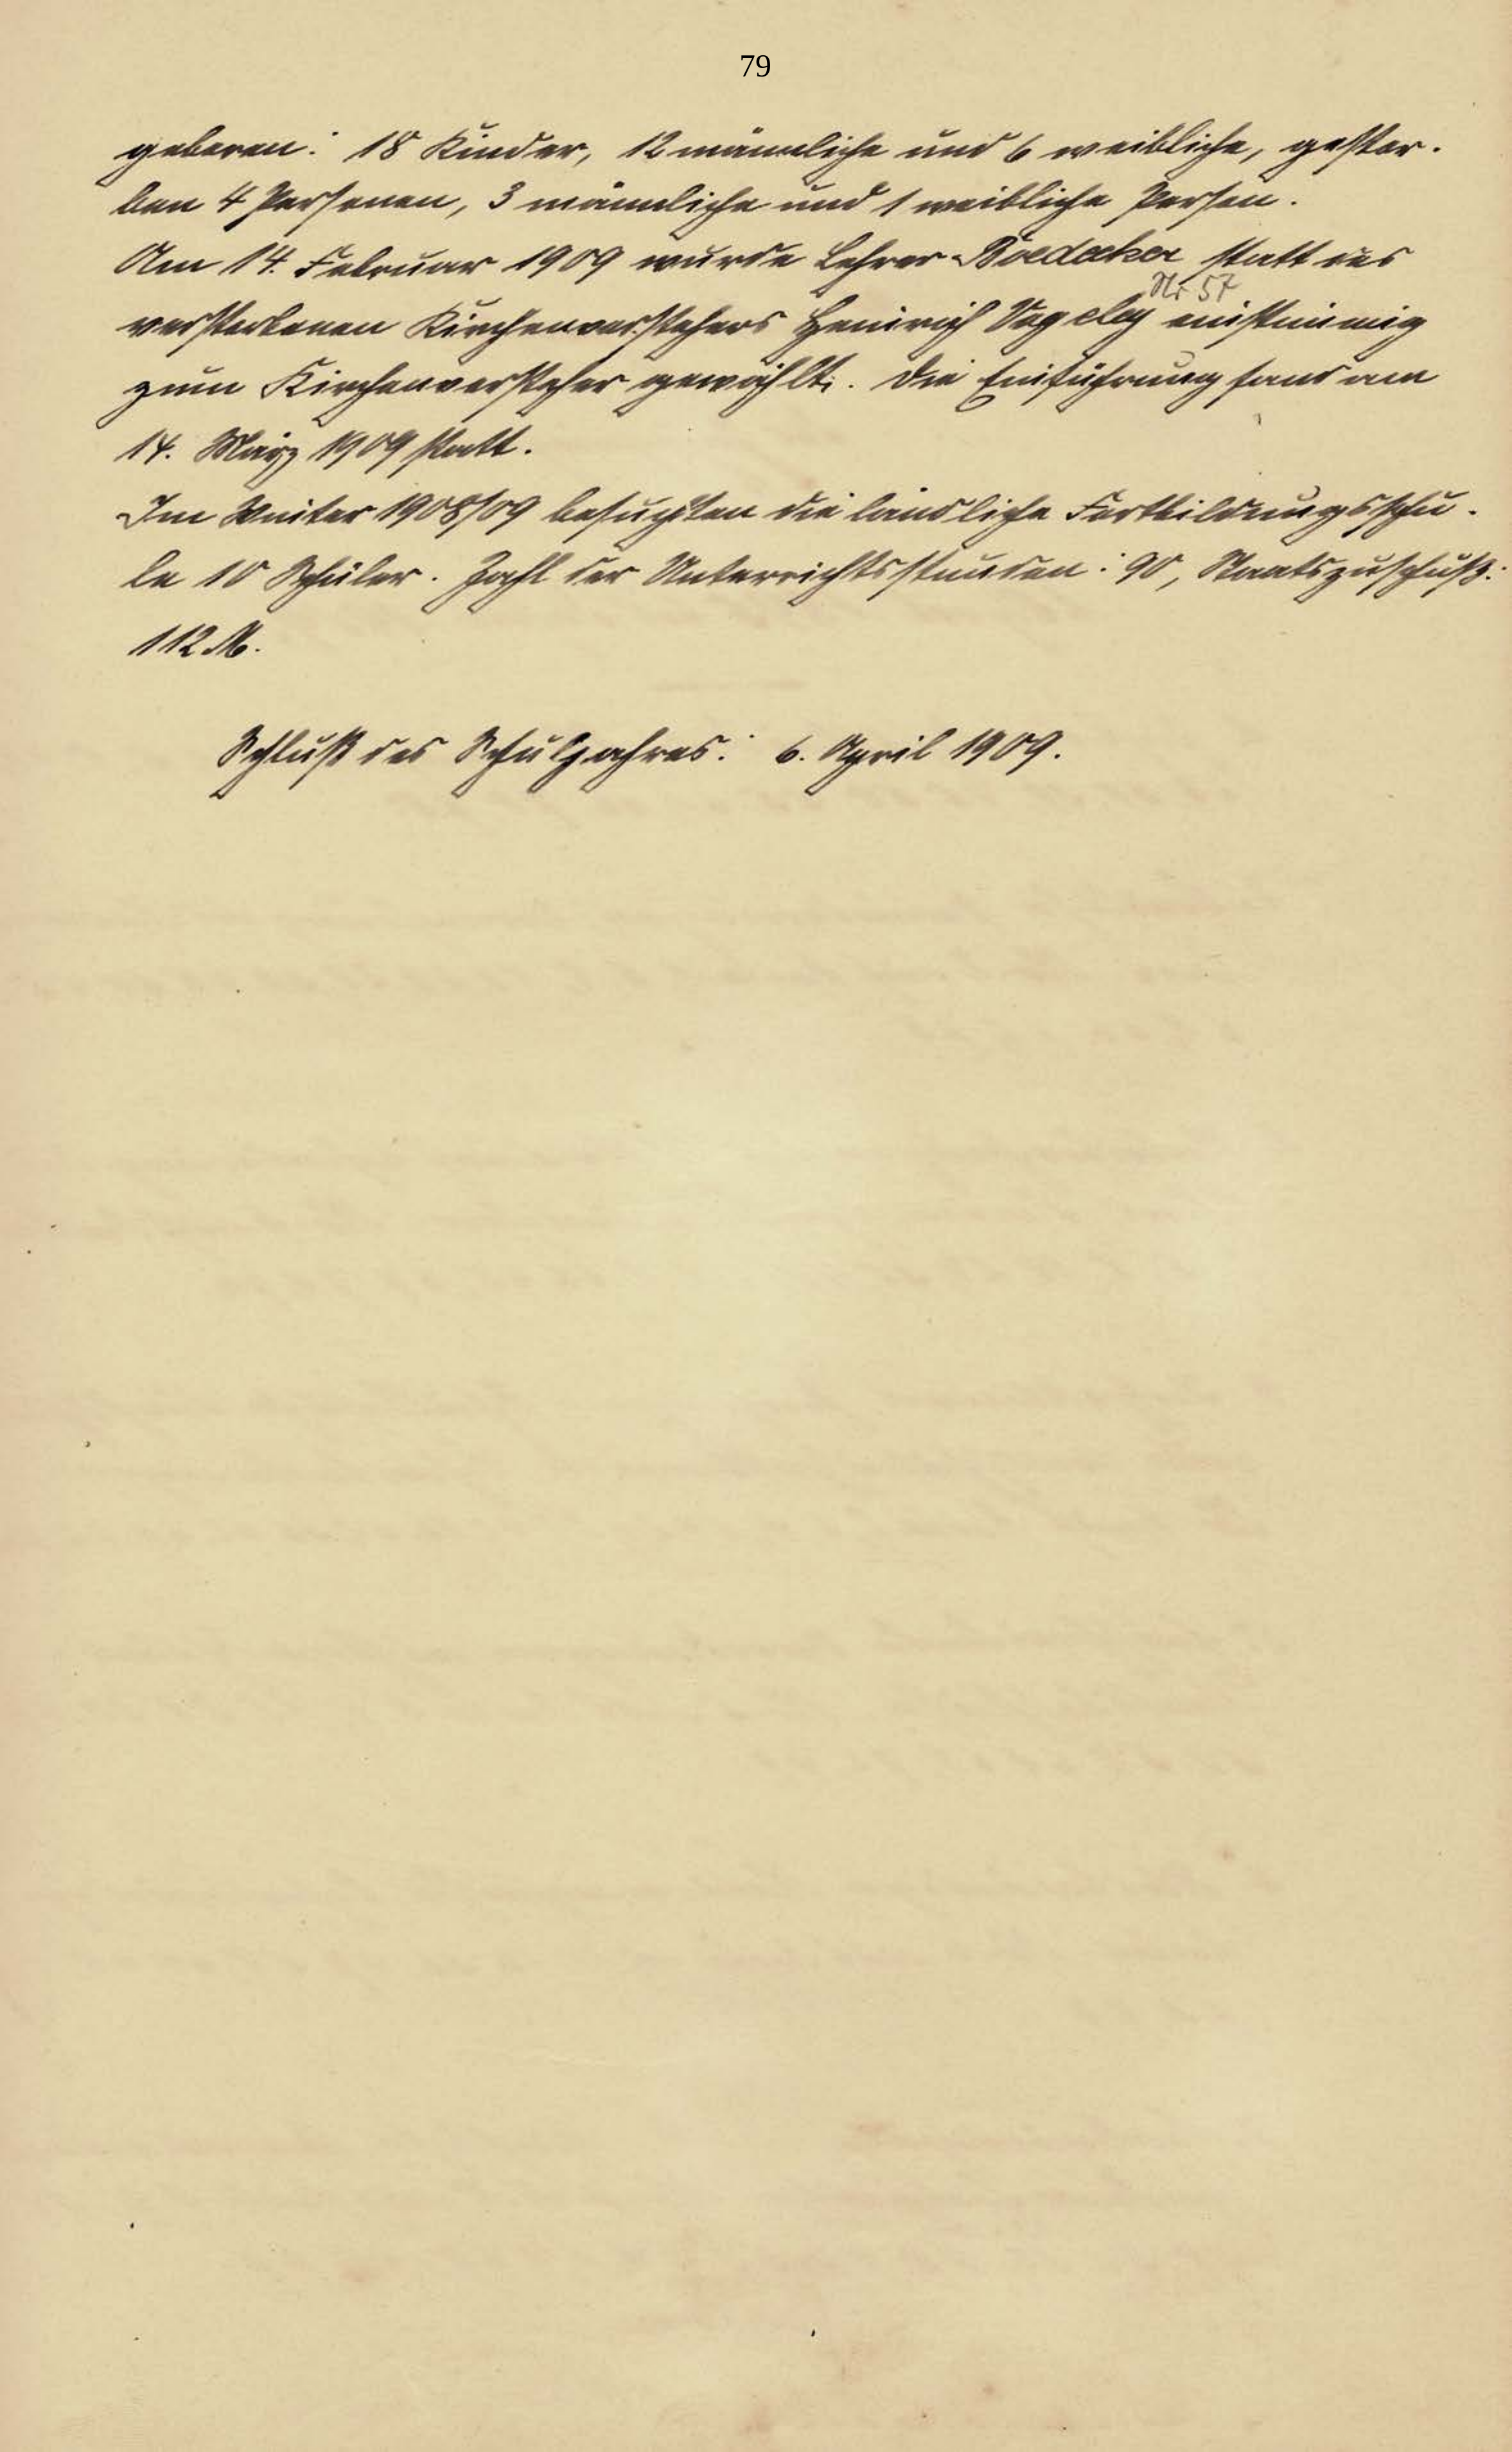 79
geboren: 18 Kinder, 12 männliche und 6 weibliche, gestor-
ben 4 Personen, 3 männliche und 1 weibliche Person.
Am 14. Februar 1909 wurde Lehrer Boedecker statt des
Nr 57
verstorbenen Kirchenvorstehers Heinrich Vogeley einstimmig
zum Kirchenvorsteher gewählt. Die Einführung fand am
14. März 1909 statt.
Im Winter 1908/09 besuchten die ländliche Fortbildungsschu-
le 10 Schüler. Zahl der Unterrichtsstunden: 90, Staatszuschuß:
112 M.
Schluß des Schuljahres: 6. April 1909.